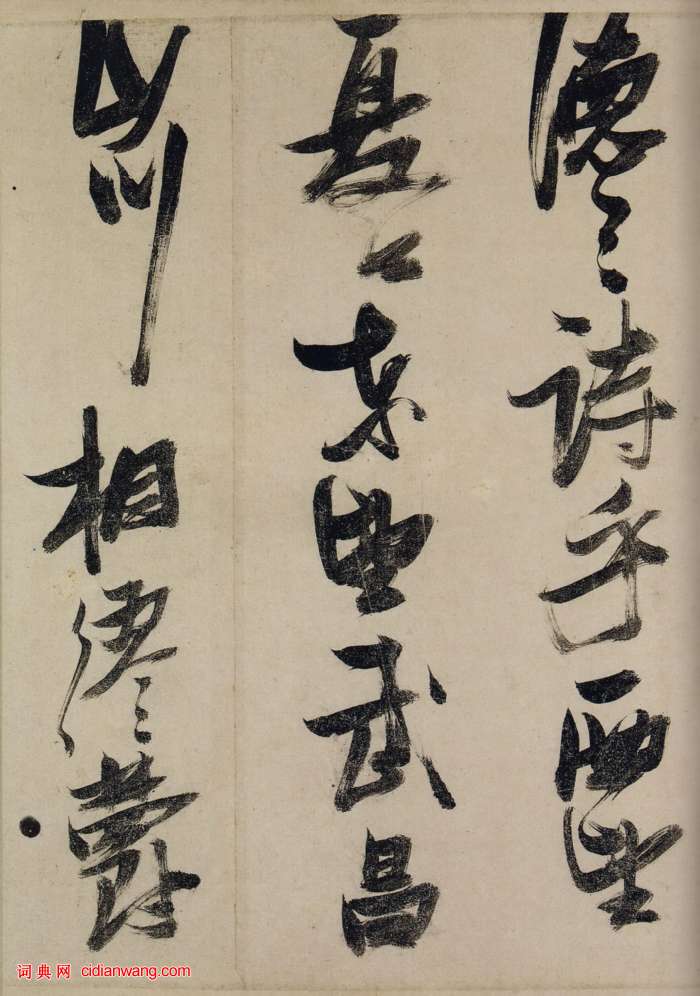 德之詩乎西望
夏口東望武昌
山川相繆鬱
词典网 cidianwang.com